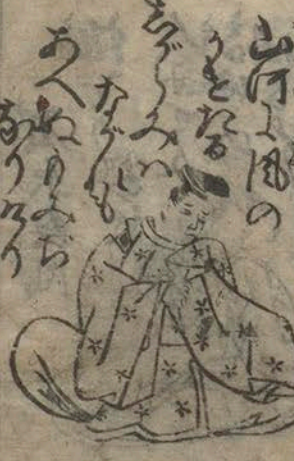 山河に風の
かけたる
しがらみハ
ながれも
あへぬもみぢ
なりけり